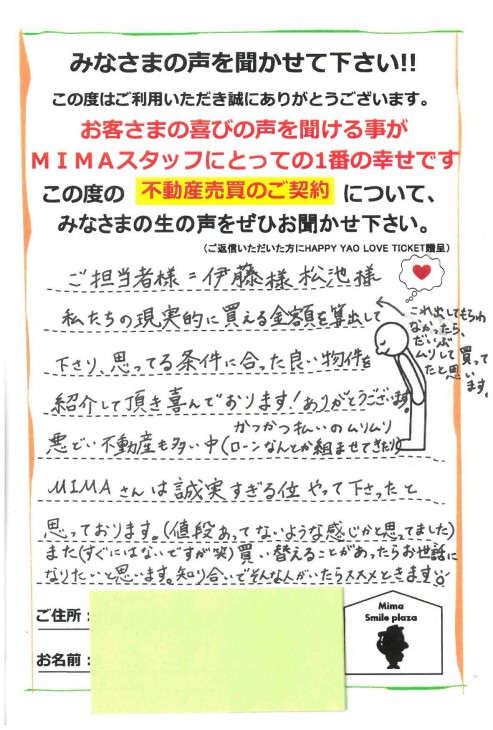 みなさまの声を聞かせて下さい!!
この度はご利用いただき誠にありがとうございます。
お客さまの喜びの声を聞ける事が
MIMAスタッフにとっての1番の幸せです
この度の 不動産売買のご契約 について、
みなさまの生の声をぜひお聞かせ下さい。
(ご返信いただいた方にHAPPY YAO LOVE TICKET贈呈)
ご担当者様=伊藤様 松池様
私たちの現実的に買える金額を算出して
下さり、思ってる条件に合った良い物件を
紹介して頂き喜んでおります!ありがとうございます。
かつかつ払いのムリムリ
悪どい不動産も多い中(ローンなんとか組ませてきたり)
MIMAさんは誠実すぎる位やって下さったと
思っております。(値段あってないような感じかと思ってました)
また(すぐにはないですが笑)買い替えることがあったらお世話に
なりたいと思います。知り合いでそんな人がいたらススメときます
これ出してもらわ
なかったら、
だいぶ
ムリして買って
たと思い
ます。
ご住所:
お名前:
Mima
Smile plaza